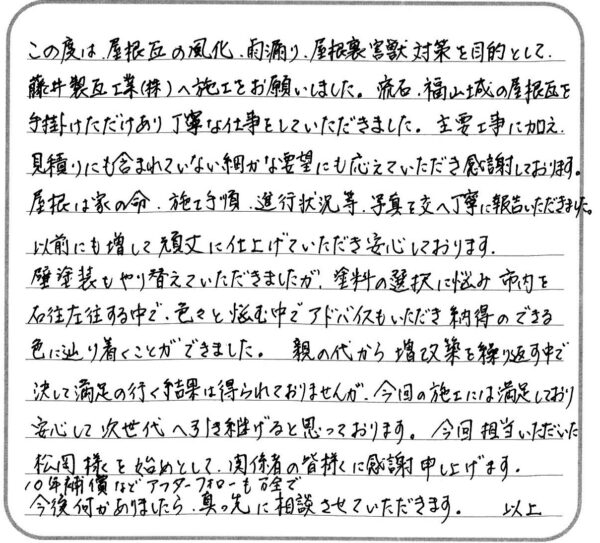 この度は、屋根瓦の風化、雨漏り、屋根裏害獣対策を目的として、
藤井製瓦工業(株)へ施工をお願いしました。流石、福山城の屋根瓦を
手掛けただけあり丁寧な仕事をしていただきました。主要工事に加え、
見積りにも含まれていない細かな要望にも応えていただき感謝しております。
屋根は家の命、施工手順、進行状況等、写真を交へ丁寧に報告いただきました。
以前にも増して頑丈に仕上げていただき安心しております。
壁塗装もやり替えていただきましたが、塗料の選択に悩み市内を
右往左往する中で、色々と悩む中でアドバイスもいただき納得のできる
色に辿り着くことができました。親の代から増改築を繰り返す中で
決して満足の行く結果は得られておりませんが、今回の施工には満足しており
安心して次世代へ引き継げると思っております。今回担当いただいた
松岡様を始めとして、関係者の皆様に感謝申し上げます。
10年補償などアフターフォローも万全で
今後何かありましたら、真っ先に相談させていただきます。 以上